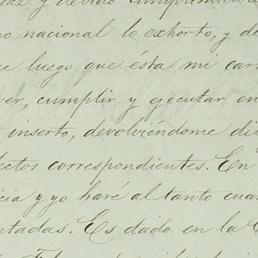 y debido cumplimiento
nacional lo exhorto, y de
luego que ésta mi car
ver, cumplir y ejecutar en
inserto, devolviéndome di
ectos correspondientes. En
icia y yo haré al tanto cuan
tadas. Es dado en la C